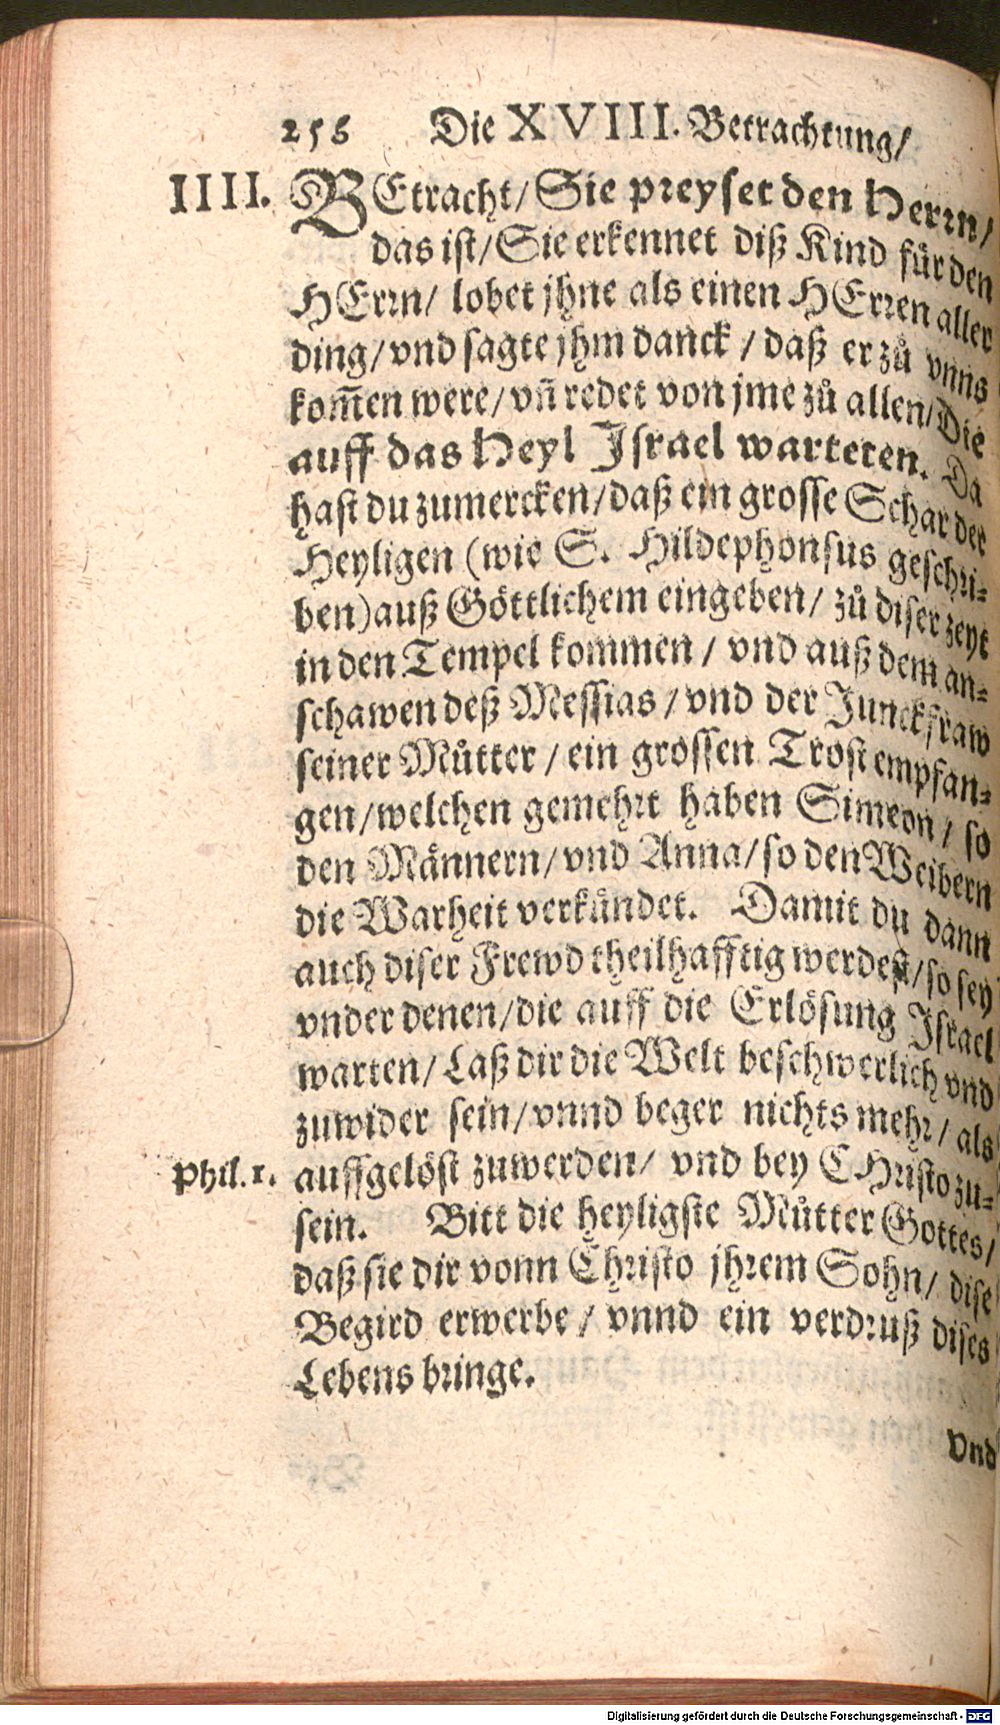 256 Die XVIII. Betrachtung/
IIII. BEtracht/ Sie preyset den Herrn/
das ist/ Sie erkennet diß Kind für den
HErrn/ lobet jhne als einen HErren aller
ding/ vnd sagte jhm danck / daß er zů vnns
kom̃en were/ vñ redet von jme zů allen/ Die
auff das Heyl Israel warteten. Da
hast du zumercken/ daß ein grosse Schar der
Heyligen (wie S. Hildephonsus geschri-
ben) auß Göttlichem eingeben/ zů diser zeyt
in den Tempel kommen / vnd auß dem an-
schawen deß Messias / vnd der Junckfraw
seiner Můtter / ein grossen Trost empfan-
gen/ welchen gemehrt haben Simeon/ so
den Männern/ vnd Anna/ so den Weibern
die Warheit verkündet. Damit du dann
auch diser Frewd theilhafftig werdest/ so sey
vnder denen/ die auff die Erlösung Israel
warten/ Laß dir die Welt beschwerlich vnd
zuwider sein/ vnnd beger nichts mehr/ als
Phil. 1. auffgelöst zuwerden/ vnd bey CHristo zu-
sein. Bitt die heyligste Můtter Gottes/
daß sie dir vonn Christo jhrem Sohn/ dise
Begird erwerbe / vnnd ein verdruß dises
Lebens bringe.
Vnd
Digitalisierung gefördert durch die Deutsche Forschungsgemeinschaft - DFG